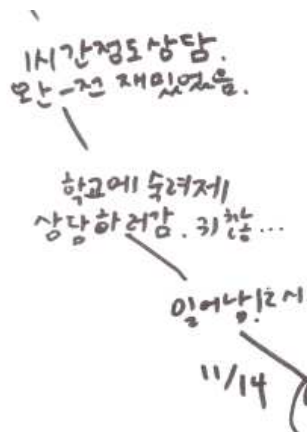 1시간정도상담.
완-전 재밌었음.
학교에 숙려제
상담하러감. 귀찮...
일어남! 12시
11/14